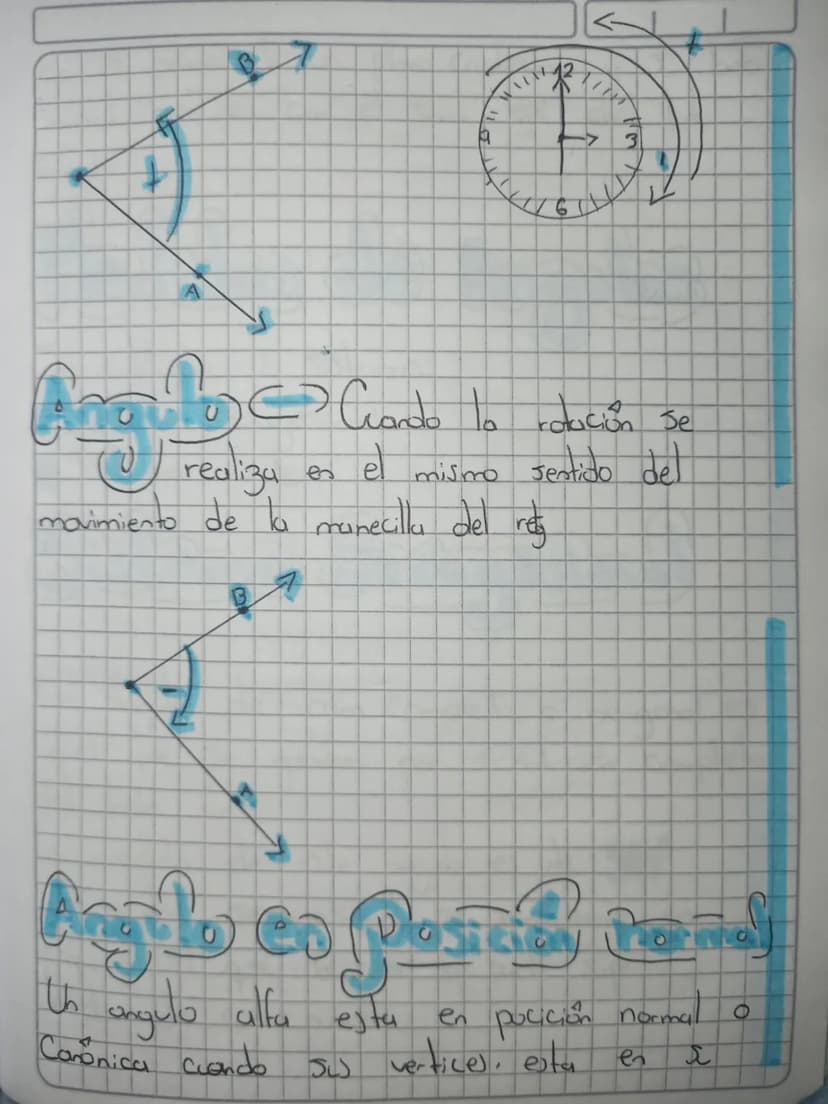 B
+
A
+
12
9
3
6
-
Angulo (-) Cuando la rotación se
realiza en el mismo sentido del
movimiento de la manecilla del reloj
B
-
A
Angulo en posición normal
Un angulo alfa esta en pocición normal o
Canónica cuando sus vertices. esta en